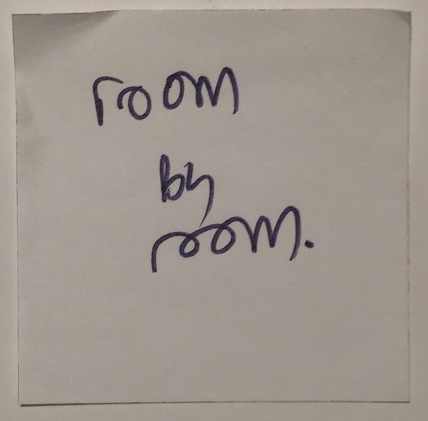 room
by
room.